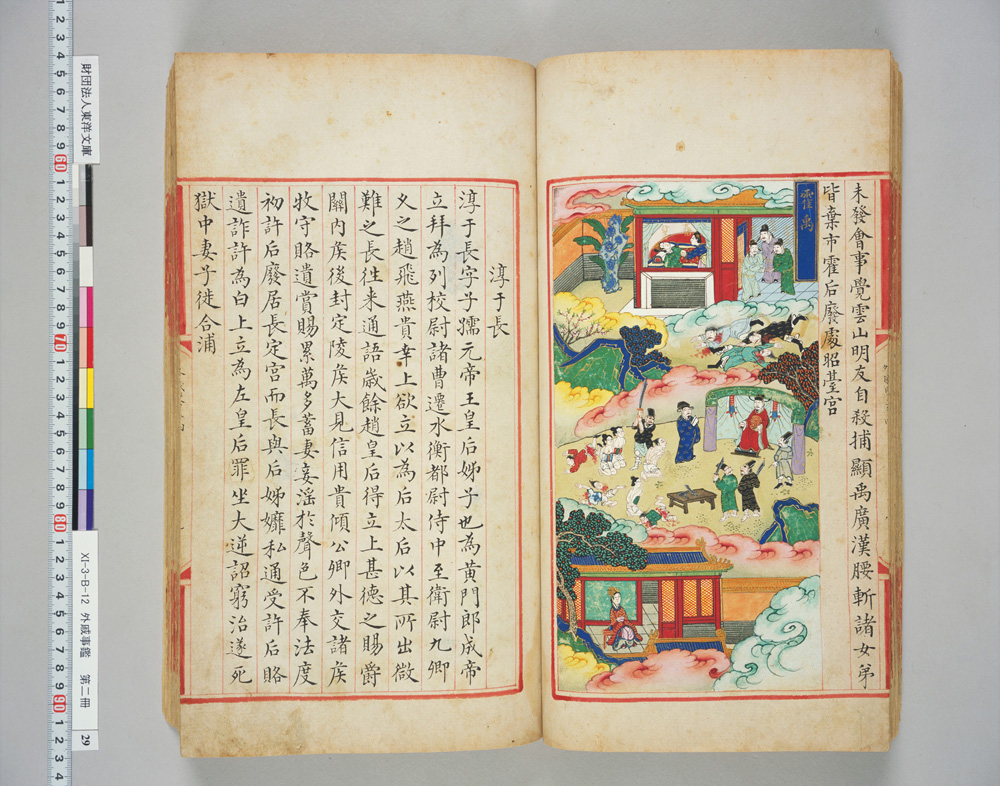 未發會事覺雲山明友自殺捕顯禹廣漢腰斬諸女弟
皆棄市霍后廢處昭䑓宮
霍禹
淳于長
淳于長字子孺元帝王皇后姊子也為黃門郎成帝
立拜為列校尉諸曹遷水衡都尉侍中至衛尉九卿
久之趙飛燕貴幸上欲立以為后太后以其所出微
難之長往来通語歲餘趙皇后得立上甚德之賜爵
關內侯後封定陵侯大見信用貴傾公卿外交諸侯
牧守賂遺賞賜累萬多蓄妻妾淫於聲色不奉法度
初許后廢居長定宮而長與后姊孊私通受許后賂
遺詐許為白上立為左皇后罪坐大逆詔窮治遂死
獄中妻子徙合浦
財団法人東洋文庫
XI-3-B-12 外戚事鑑 第二冊
29
1 2 3 4 5 6 7 8 9 60 1 2 3 4 5 6 7 8 9 70 1 2 3 4 5 6 7 8 9 80 1 2 3 4 5 6 7 8 9 90 1 2 3 4